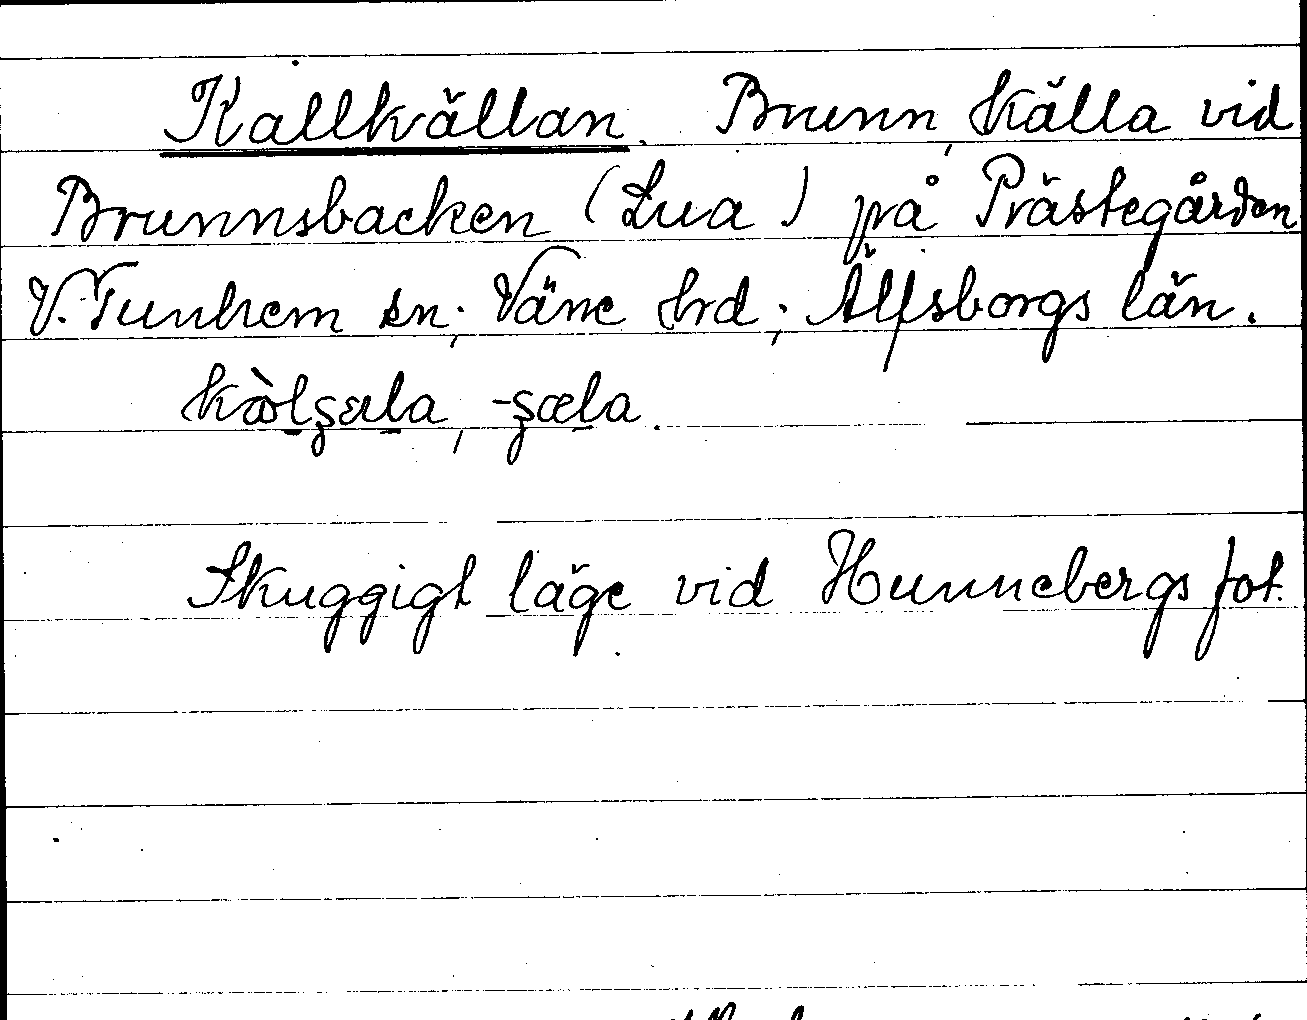 Kallkällan. Brunn, källa vid
Brunnsbacken (Lua) på Prästegården
V. Tunhem sn; Väne hrd; Älfsborgs län.
-şæla.
Skuggigt läge vid Hunnebergs fot.